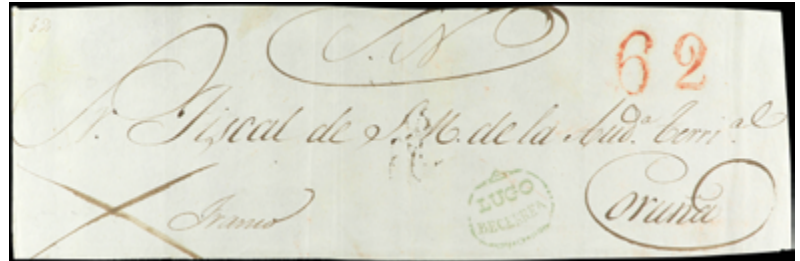 62
S. N.
62
Sr. Fiscal de S. M. de la Aud.ª Terri.al
Franco
LUGO
BECERREA
Coruña